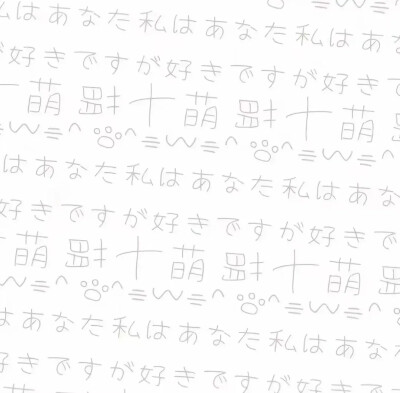 はあなた私はあなた私はあな
好きですが好きですが好き
萌 十萌 十萌
≡w≡^ ^≡w≡^ ^≡w≡^
はあなた私はあなた私はあ
好きですが好きですが好きで
萌 十萌 十萌
w≡^ ^≡w≡^ ^≡w≡^
はあなた私はあなた私はあな
きですが好きですが好きで